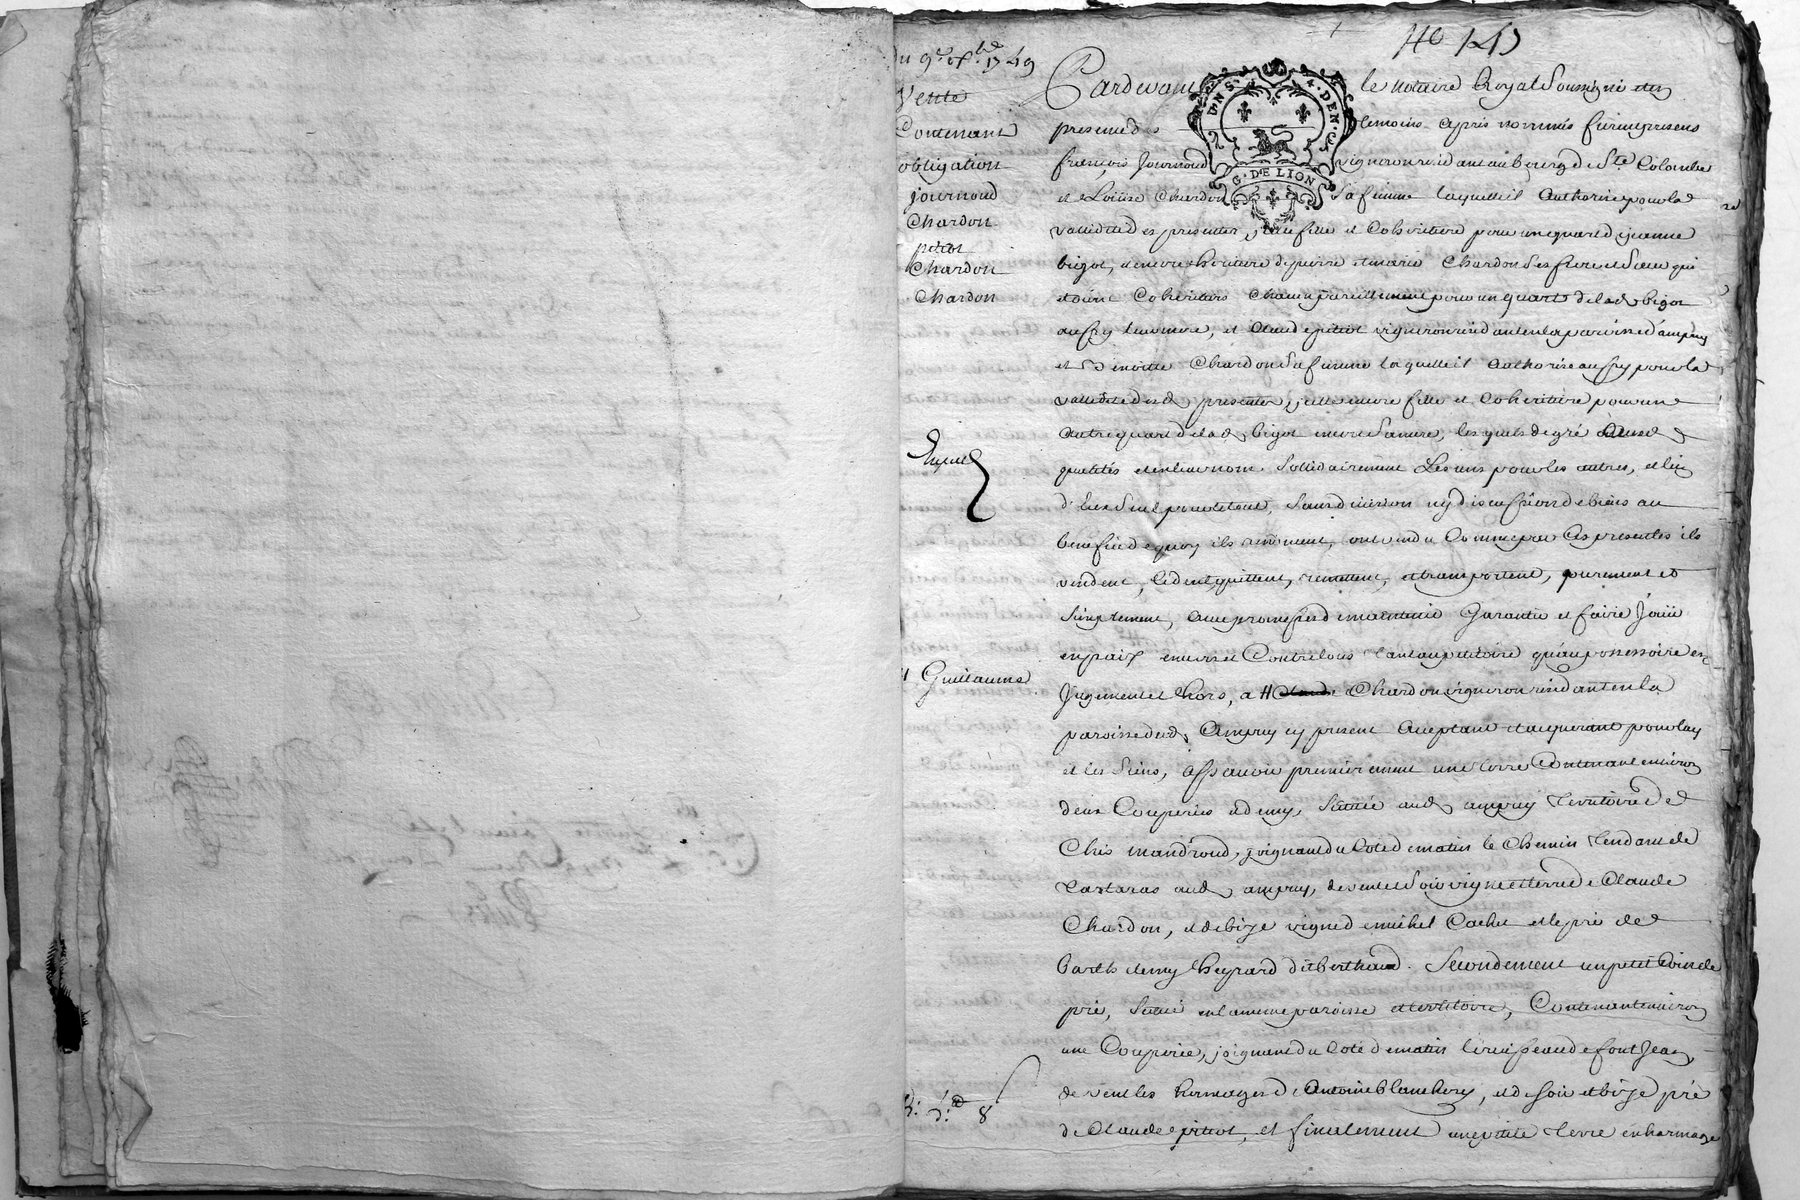 du 9e 8bre 1749
Vente
Contenant
obligation
journoud
Chardon
pitiot
Chardon
Chardon
Guillaume
8
140 147
D'VN S. 4. DEN.
G. DE LION
Pardevant le notaire Royal Soussigné et en
presence des temoins apres nommés furent presens
françois Journoud vigneron residant au bourg de Ste Colombe
et Loüise Chardon Sa femme laquelle il authorise pour la
validité des presentes, icelle fille et Coheritiere pour un quart de jeanne
bigot, et encore heritiere de pierre et marie Chardon Ses frere et Soeur qui
etoient Coheritiers chacun pareillement pour un quart de lad. bigot
aussy leur mere, et Claude pitiot vigneron residant en la paroisse d'ampuy
et Chardon Sa femme laquelle il authorise aussy pour la
validité desd. presentes, icelle encore fille et Coheritiere pour un
autre quart de lad. bigot encore Sa mere, lesquels de gré
qualités et en leur nom Sollidairement Les uns pour les autres, et l'un
d'eux Seul pour le tout, Sans division ny discussion de biens au
benefice de quoy ils renoncent, ont vendu Comme par Ces presentes ils
vendent, Cedent, quittent, remettent, et transportent, purement et
Simplement, avec promesse de maintenir Garantir et faire Joüir
en paix envers et Contre tous tant au petitoire qu'au possessoire en
Jugement et hors, a Chardon vigneron residant en la
paroisse dud. Ampuy cy present acceptant et acquerant pour luy
et les Siens, assavoir premierement une terre Contenant environ
deux Couperées et demy, Scituée aud. ampuy territoire de
Chés mandroud, joignant du Coté de matin le Chemin tendant de
aud. ampuy, de vent et Soir vigne et terre de Claude
Chardon, et de bize vigne de michel Cachet et le pré de
barthelemy heyrard dit berthaud. Secondement un petit Coin de
pré, Scitué en la meme paroisse et territoire, Contenant environ
une Couperée, joignant du Coté de matin le ruisseau de font Jean,
de vent les hermages d'Antoine blanchery, et de Soir et bize pré
de Claude pitiot, et finalement une petite terre en hermage